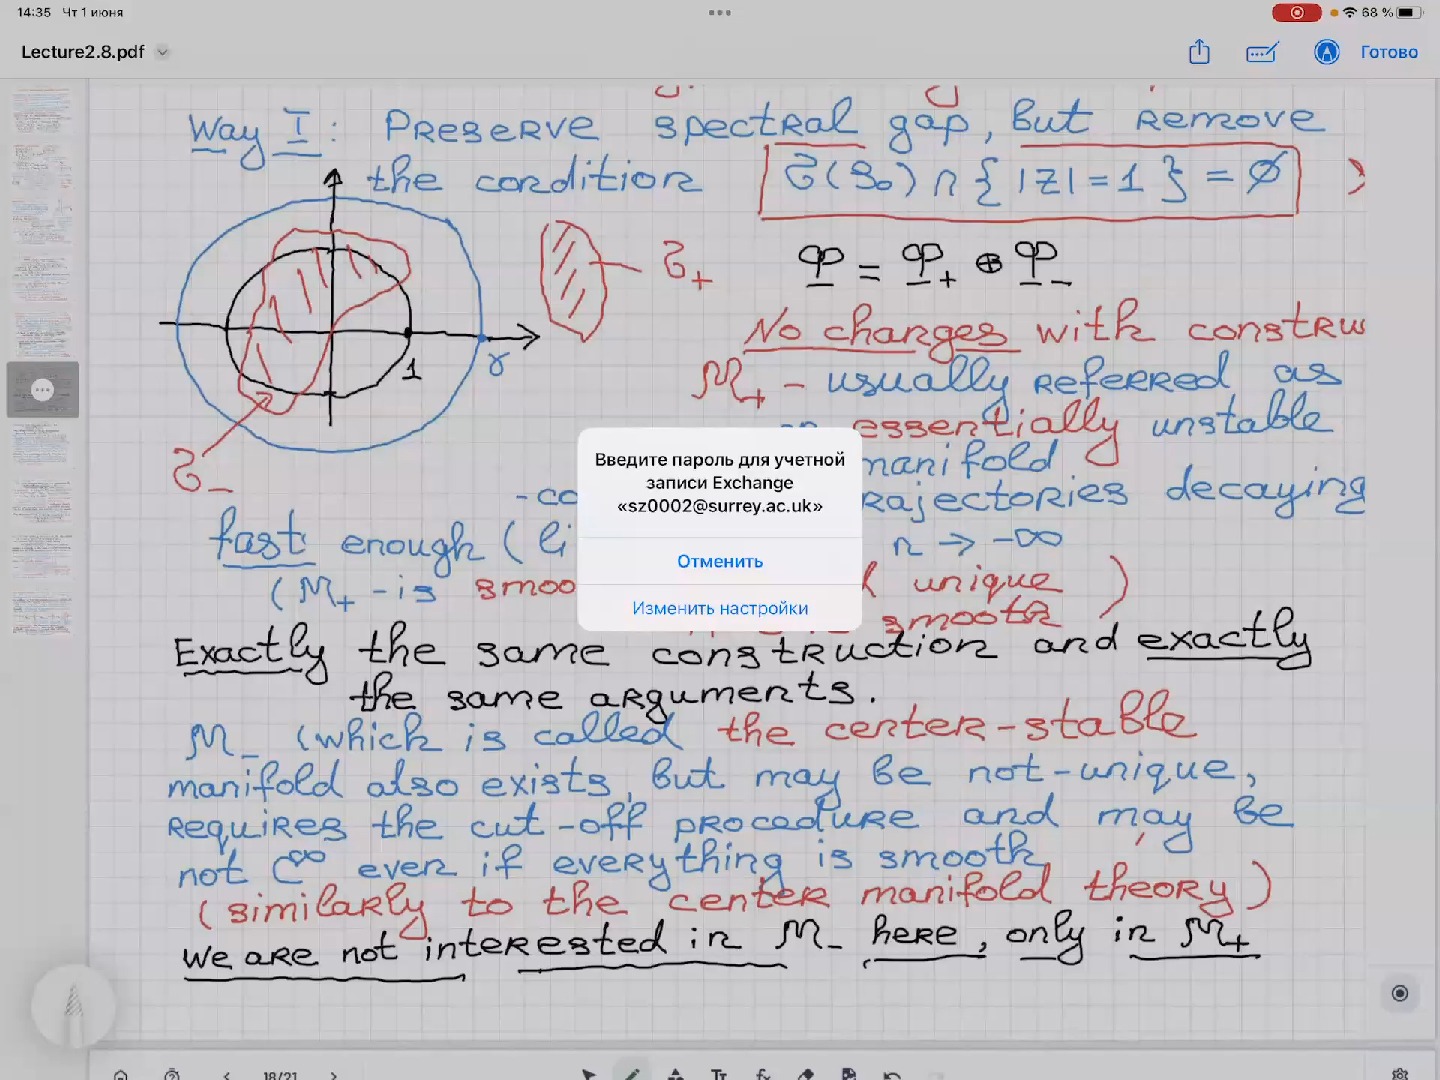 14:35 Чт 1 июня
68 %
Lecture2.8.pdf
Готово
Way I: Preserve spectral gap, but remove
the condition σ(S₀) ∩ { |z| = 1 } = ∅
σ₊ Φ = Φ₊ ⊕ Φ₋
No changes with constru
1 r
M₊ - usually referred as
essentially unstable
manifold
σ₋
rajectories decaying
fast enough ( n → -∞
( M₊ - is smoo ( unique )
smooth
Введите пароль для учетной
записи Exchange
«sz0002@surrey.ac.uk»
Отменить
Изменить настройки
Exactly the same construction and exactly
the same arguments.
M₋ (which is called the center-stable
manifold also exists, but may be not-unique,
requires the cut-off procedure and may be
not C^∞ even if everything is smooth
(similarly to the center manifold theory)
we are not interested in M₋ here, only in M₊
18/21
Tт
fx